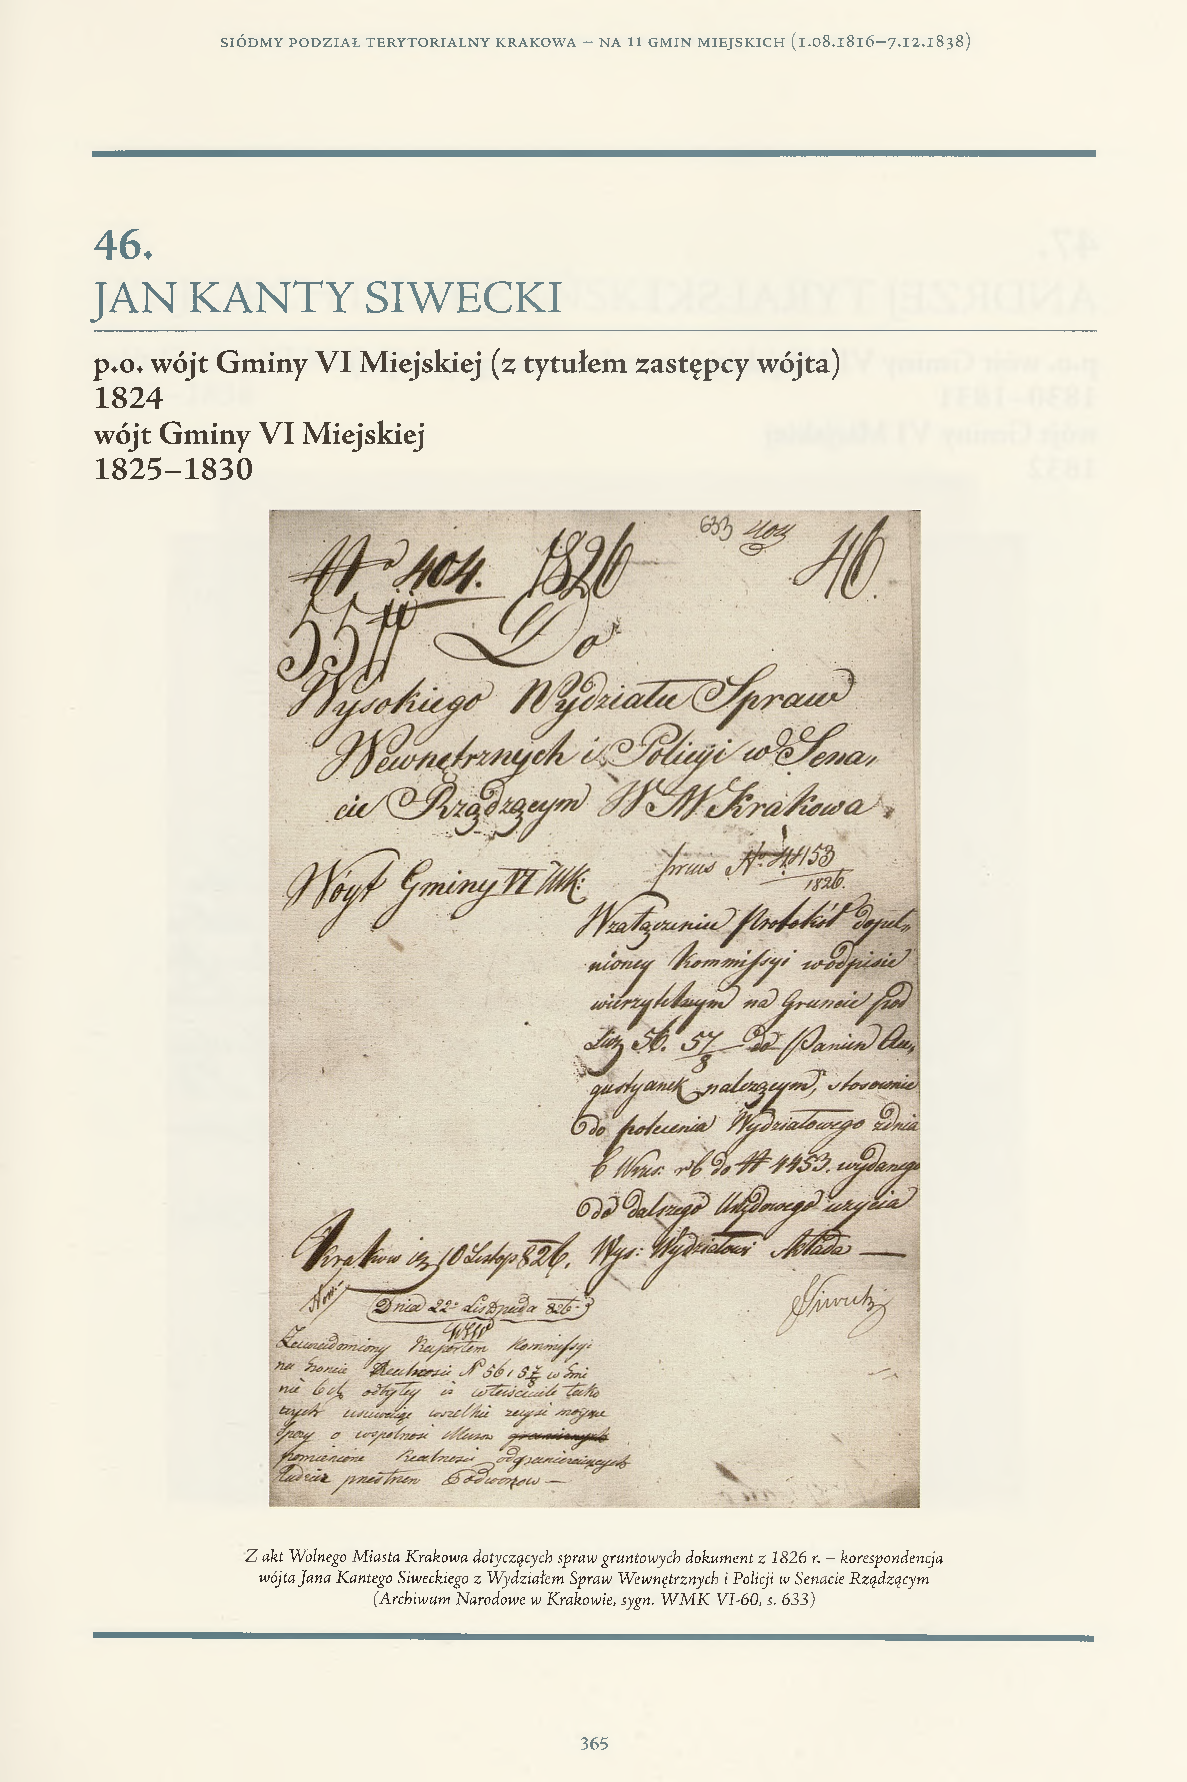 SIÓDMY PODZIAŁ TERYTORIALNY KRAKOWA – NA 11 GMIN MIEJSKICH (1.08.1816–7.12.1838)
46.
JAN KANTY SIWECKI
p.o. wójt Gminy VI Miejskiej (z tytułem zastępcy wójta)
1824
wójt Gminy VI Miejskiej
1825–1830
633 404
No 404. 1826 46.
Do
Wysokiego Wydziału Spraw
Wewnętrznych i Policyi w Sena,
cie Rządzącym W M Krakowa
Wóyt Gminy VI
No 4453
1826.
Wzałączeniu Protokół dopeł,
nioney Kommissyi
na Gruncie pod
56. 57/8 do Panien Au,
gustyanek należącym, stosownie
do polecenia Wydziałowego zdnia
6 Wrześ. rb do N 4453. wydanego
do dalszego Urzędowego użycia
Krakow 10 Listop 826. Wys: Wydziałowi składa —
Siwecki
Dnia 22 Listopada 826
Zawiadomiony Raportem Kommissyi
na Realności N 56 i 57/8 w Gmi
nie odbytey iż
wszelkie
Spory o wspolność Muru
pomienione Realności odgraniczaiących
tudzież Podworzow —
Z akt Wolnego Miasta Krakowa dotyczących spraw gruntowych dokument z 1826 r. – korespondencja
wójta Jana Kantego Siweckiego z Wydziałem Spraw Wewnętrznych i Policji w Senacie Rządzącym
(Archiwum Narodowe w Krakowie, sygn. WMK VI-60, s. 633)
365